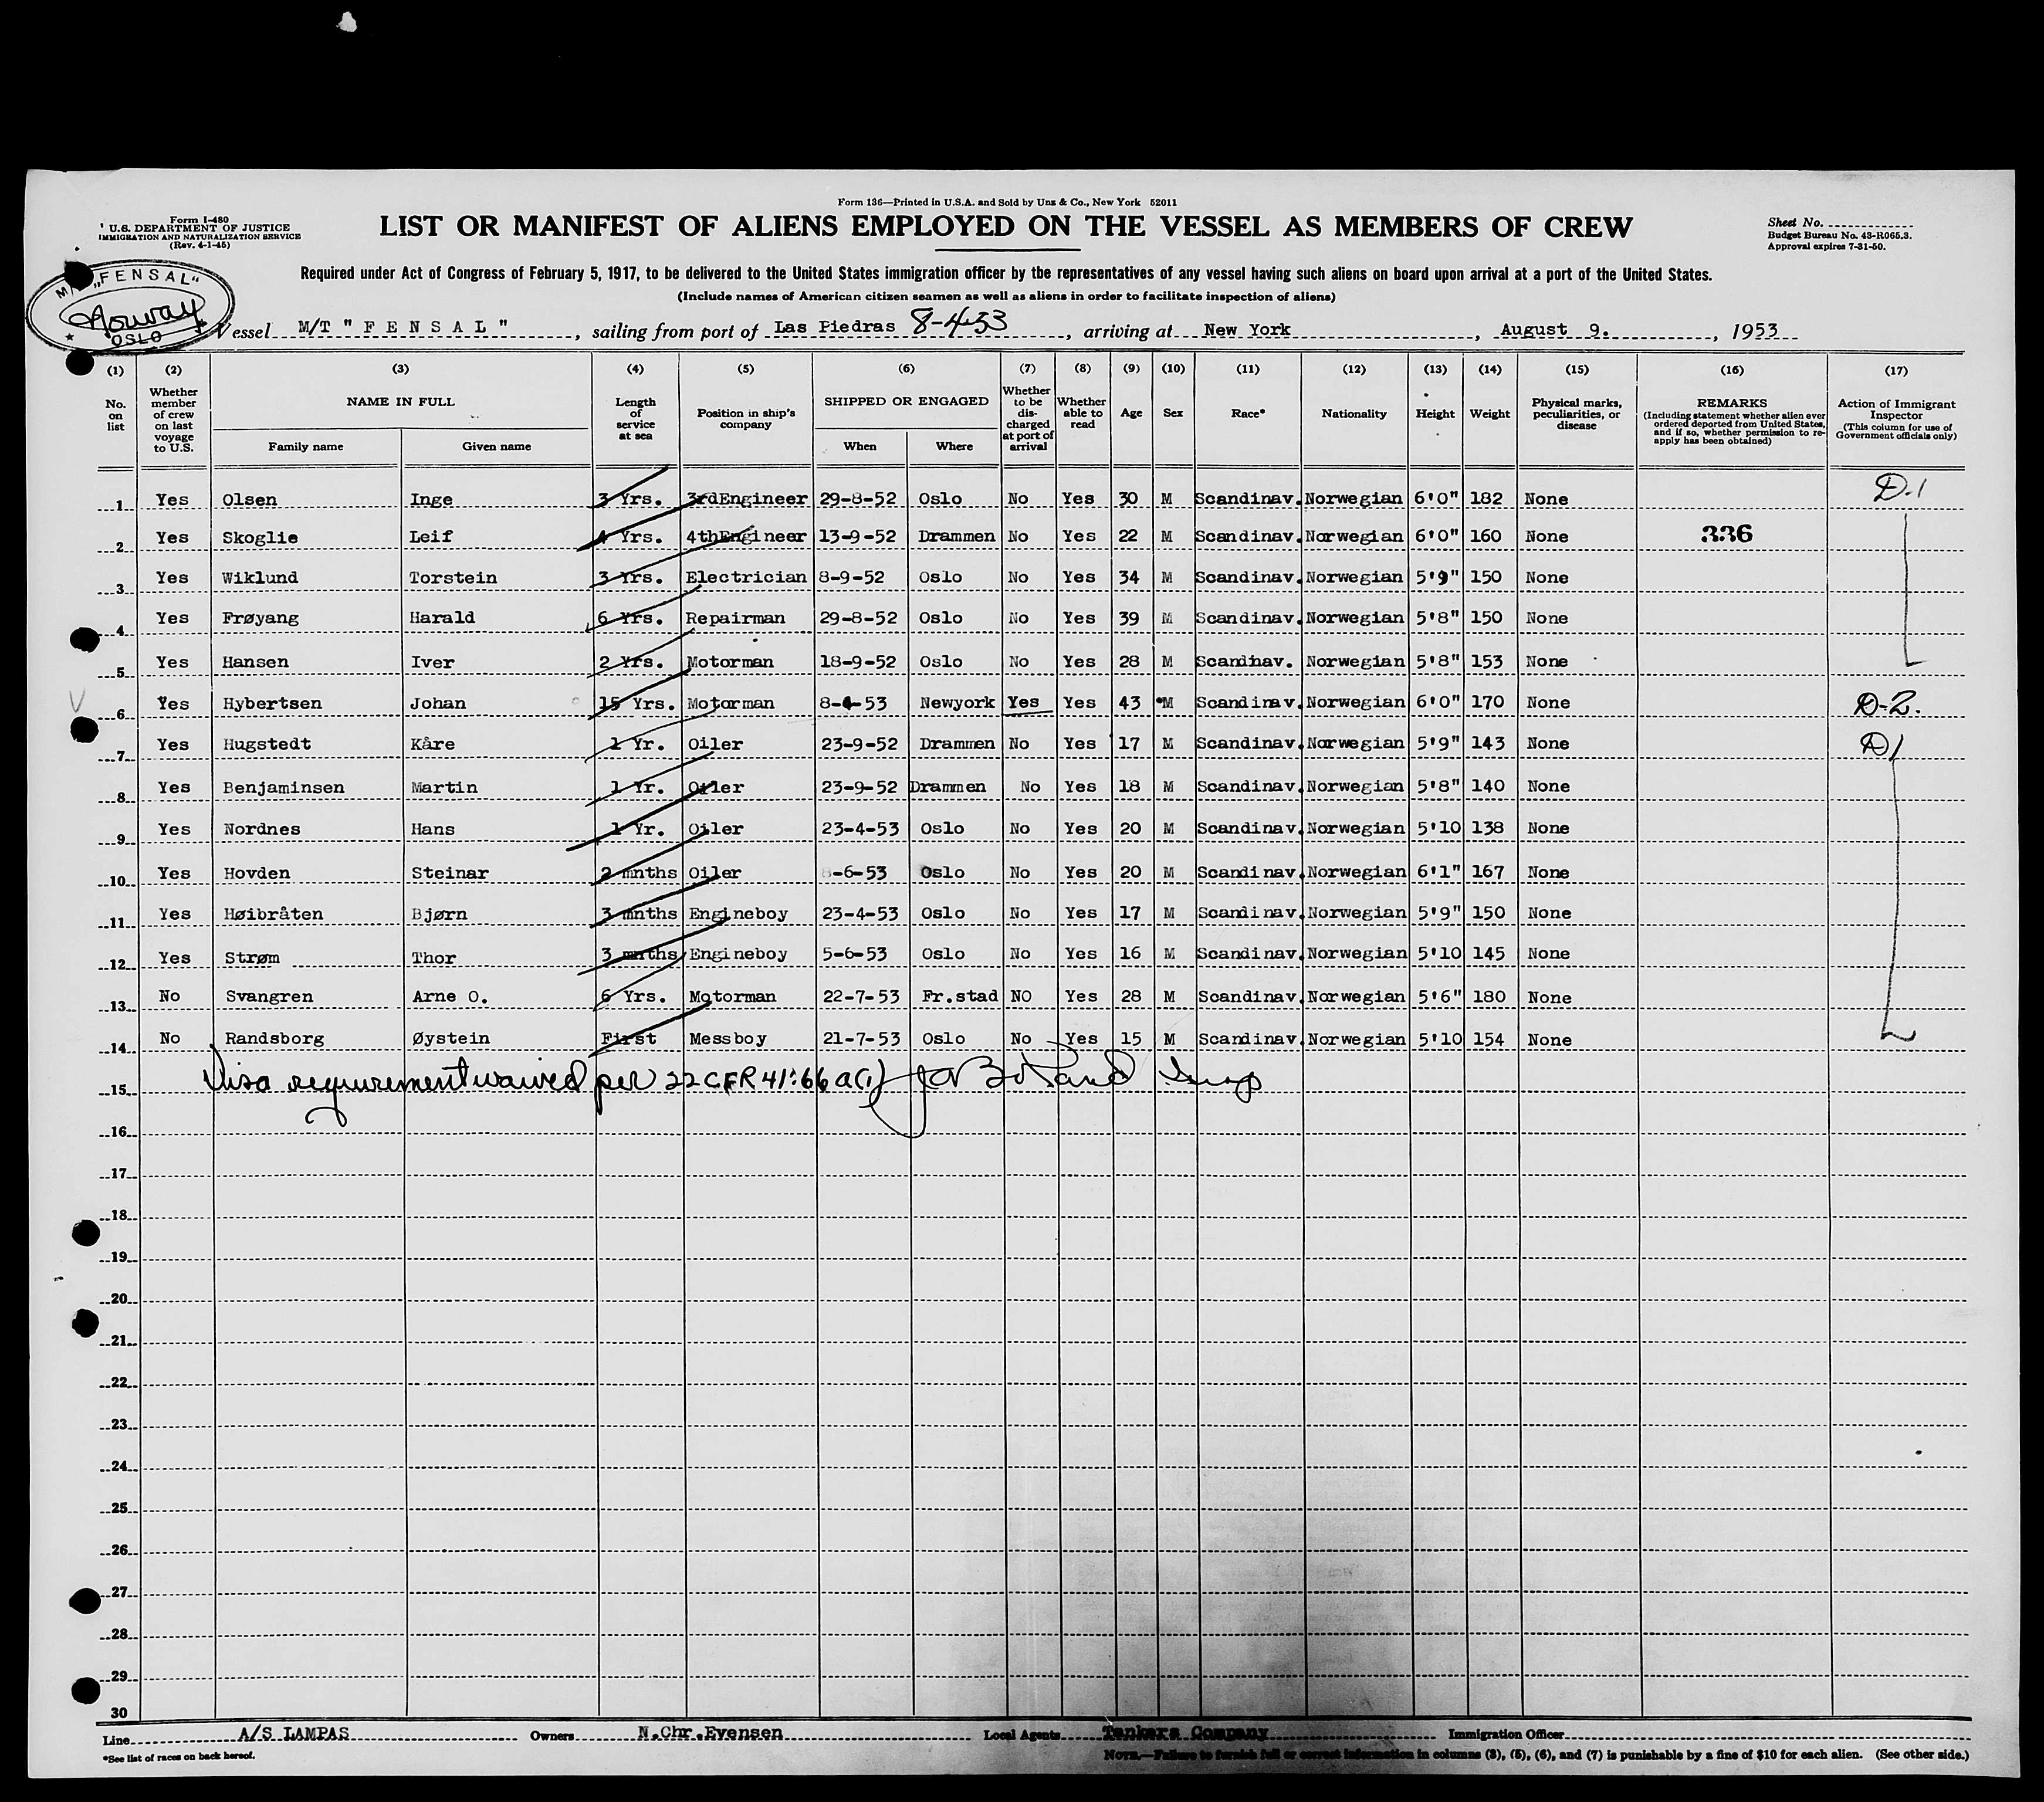 Form 136—Printed in U.S.A. and Sold by Unz & Co., New York 52011
Form I-480
U.S. DEPARTMENT OF JUSTICE
IMMIGRATION AND NATURALIZATION SERVICE
(Rev. 4-1-45)
LIST OR MANIFEST OF ALIENS EMPLOYED ON THE VESSEL AS MEMBERS OF CREW
Sheet No.
Budget Bureau No. 43-R065.3.
Approval expires 7-31-50.
Required under Act of Congress of February 5, 1917, to be delivered to the United States immigration officer by the representatives of any vessel having such aliens on board upon arrival at a port of the United States.
(Include names of American citizen seamen as well as aliens in order to facilitate inspection of aliens)
"FENSAL"
Norway
OSLO
Vessel M/T "FENSAL", sailing from port of Las Piedras 8-4-53, arriving at New York, August 9., 1953
(1) No. on list
(2) Whether member of crew on last voyage to U.S.
(3) NAME IN FULL Family name Given name
(4) Length of service at sea
(5) Position in ship's company
(6) SHIPPED OR ENGAGED When Where
(7) Whether to be discharged at port of arrival
(8) Whether able to read
(9) Age
(10) Sex
(11) Race*
(12) Nationality
(13) Height
(14) Weight
(15) Physical marks, peculiarities, or disease
(16) REMARKS (Including statement whether alien ever ordered deported from United States, and if so, whether permission to re-apply has been obtained)
(17) Action of Immigrant Inspector (This column for use of Government officials only)
1 Yes Olsen Inge 3 Yrs. 3rdEngineer 29-8-52 Oslo No Yes 30 M Scandinav. Norwegian 6'0" 182 None D-1
2 Yes Skoglie Leif 4 Yrs. 4thEngineer 13-9-52 Drammen No Yes 22 M Scandinav. Norwegian 6'0" 160 None 336
3 Yes Wiklund Torstein 3 Yrs. Electrician 8-9-52 Oslo No Yes 34 M Scandinav. Norwegian 5'9" 150 None
4 Yes Frøyang Harald 6 Yrs. Repairman 29-8-52 Oslo No Yes 39 M Scandinav. Norwegian 5'8" 150 None
5 Yes Hansen Iver 2 Yrs. Motorman 18-9-52 Oslo No Yes 28 M Scandinav. Norwegian 5'8" 153 None
6 Yes Hybertsen Johan 15 Yrs. Motorman 8-4-53 Newyork Yes Yes 43 M Scandinav. Norwegian 6'0" 170 None D-2.
7 Yes Hugstedt Kåre 1 Yr. Oiler 23-9-52 Drammen No Yes 17 M Scandinav. Norwegian 5'9" 143 None D1
8 Yes Benjaminsen Martin 1 Yr. Oiler 23-9-52 Drammen No Yes 18 M Scandinav. Norwegian 5'8" 140 None
9 Yes Nordnes Hans 1 Yr. Oiler 23-4-53 Oslo No Yes 20 M Scandinav. Norwegian 5'10 138 None
10 Yes Hovden Steinar 2 mnths Oiler 8-6-53 Oslo No Yes 20 M Scandinav. Norwegian 6'1" 167 None
11 Yes Høibråten Bjørn 3 mnths Engineboy 23-4-53 Oslo No Yes 17 M Scandinav. Norwegian 5'9" 150 None
12 Yes Strøm Thor 3 mnths Engineboy 5-6-53 Oslo No Yes 16 M Scandinav. Norwegian 5'10 145 None
13 No Svangren Arne O. 6 Yrs. Motorman 22-7-53 Fr.stad NO Yes 28 M Scandinav. Norwegian 5'6" 180 None
14 No Randsborg Øystein First Messboy 21-7-53 Oslo No Yes 15 M Scandinav. Norwegian 5'10 154 None
15 Visa requirement waived per 22 CFR 41:66 a(1)
16
17
18
19
20
21
22
23
24
25
26
27
28
29
30
Line A/S LAMPAS Owners N.Chr.Evensen Local Agents Tankers Company Immigration Officer
*See list of races on back hereof.
NOTE.—Failure to furnish full or correct information in columns (3), (5), (6), and (7) is punishable by a fine of $10 for each alien. (See other side.)